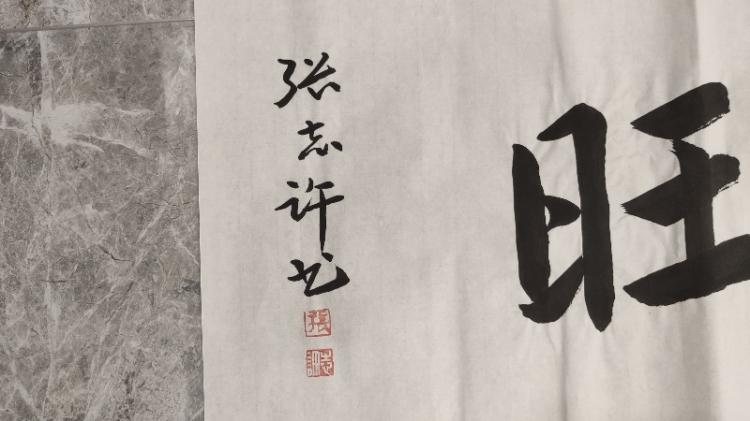 旺
张志许书
張